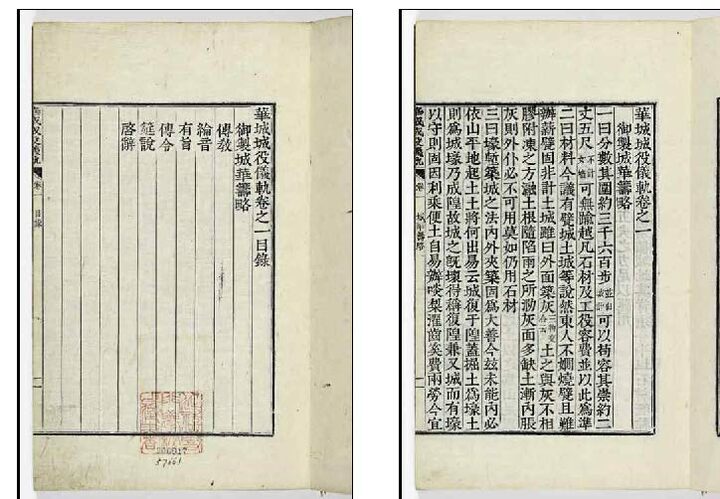 華城城役儀軌卷之一目錄
御製城華籌略
傳敎
綸音
有旨
傳令
筵說
啓辭
200817
57661
華城城役儀軌卷之一
御製城華籌略
一曰分數其圍約三千六百步 可以苟容其崇約二
丈五尺 不計女墻 可無踰越凡石材及工役容費並以此爲準
二曰材料今議有甓城土城等說然東人不嫺燒甓且難
辦薪甓固非計土城雖曰外面築灰 土之與灰不相
膠附凍之方融土根隨陷雨之所泐灰面多缺土漸內脹
灰則外仆必不可用莫如仍用石材
三曰壕塹築城之法內外夾築固爲大善今玆未能內必
依山平地起土土將何出易云城復于隍蓋掘土爲壕土
則爲城壕乃成隍故城之旣壞得稱復隍兼又城而有壕
以守則固因利乘便土自易辦啖梨濯齒矣費兩勞今宜